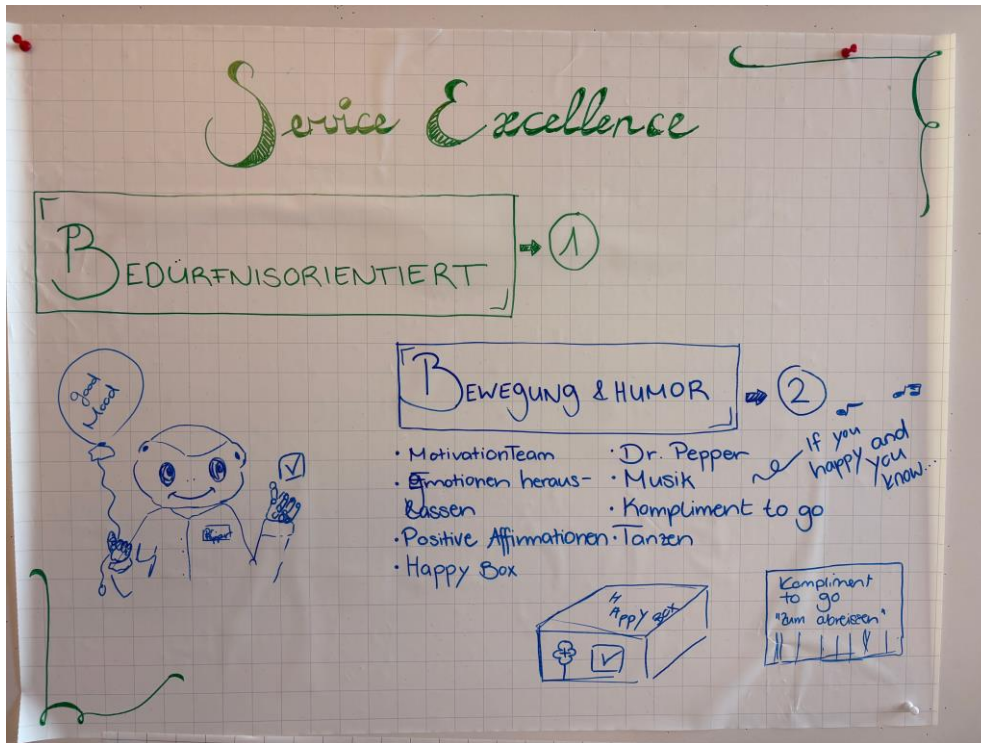 Service Excellence
BEDÜRFNISORIENTIERT
1
good
Mood
BEWEGUNG & HUMOR
2
If you
happy and
you
know...
· Motivation Team
· Emotionen heraus-
lassen
· Positive Affirmationen
· Happy Box
· Dr. Pepper
· Musik
· Kompliment to go
· Tanzen
HAPPY BOX
Kompliment
to go
"zum abreissen"